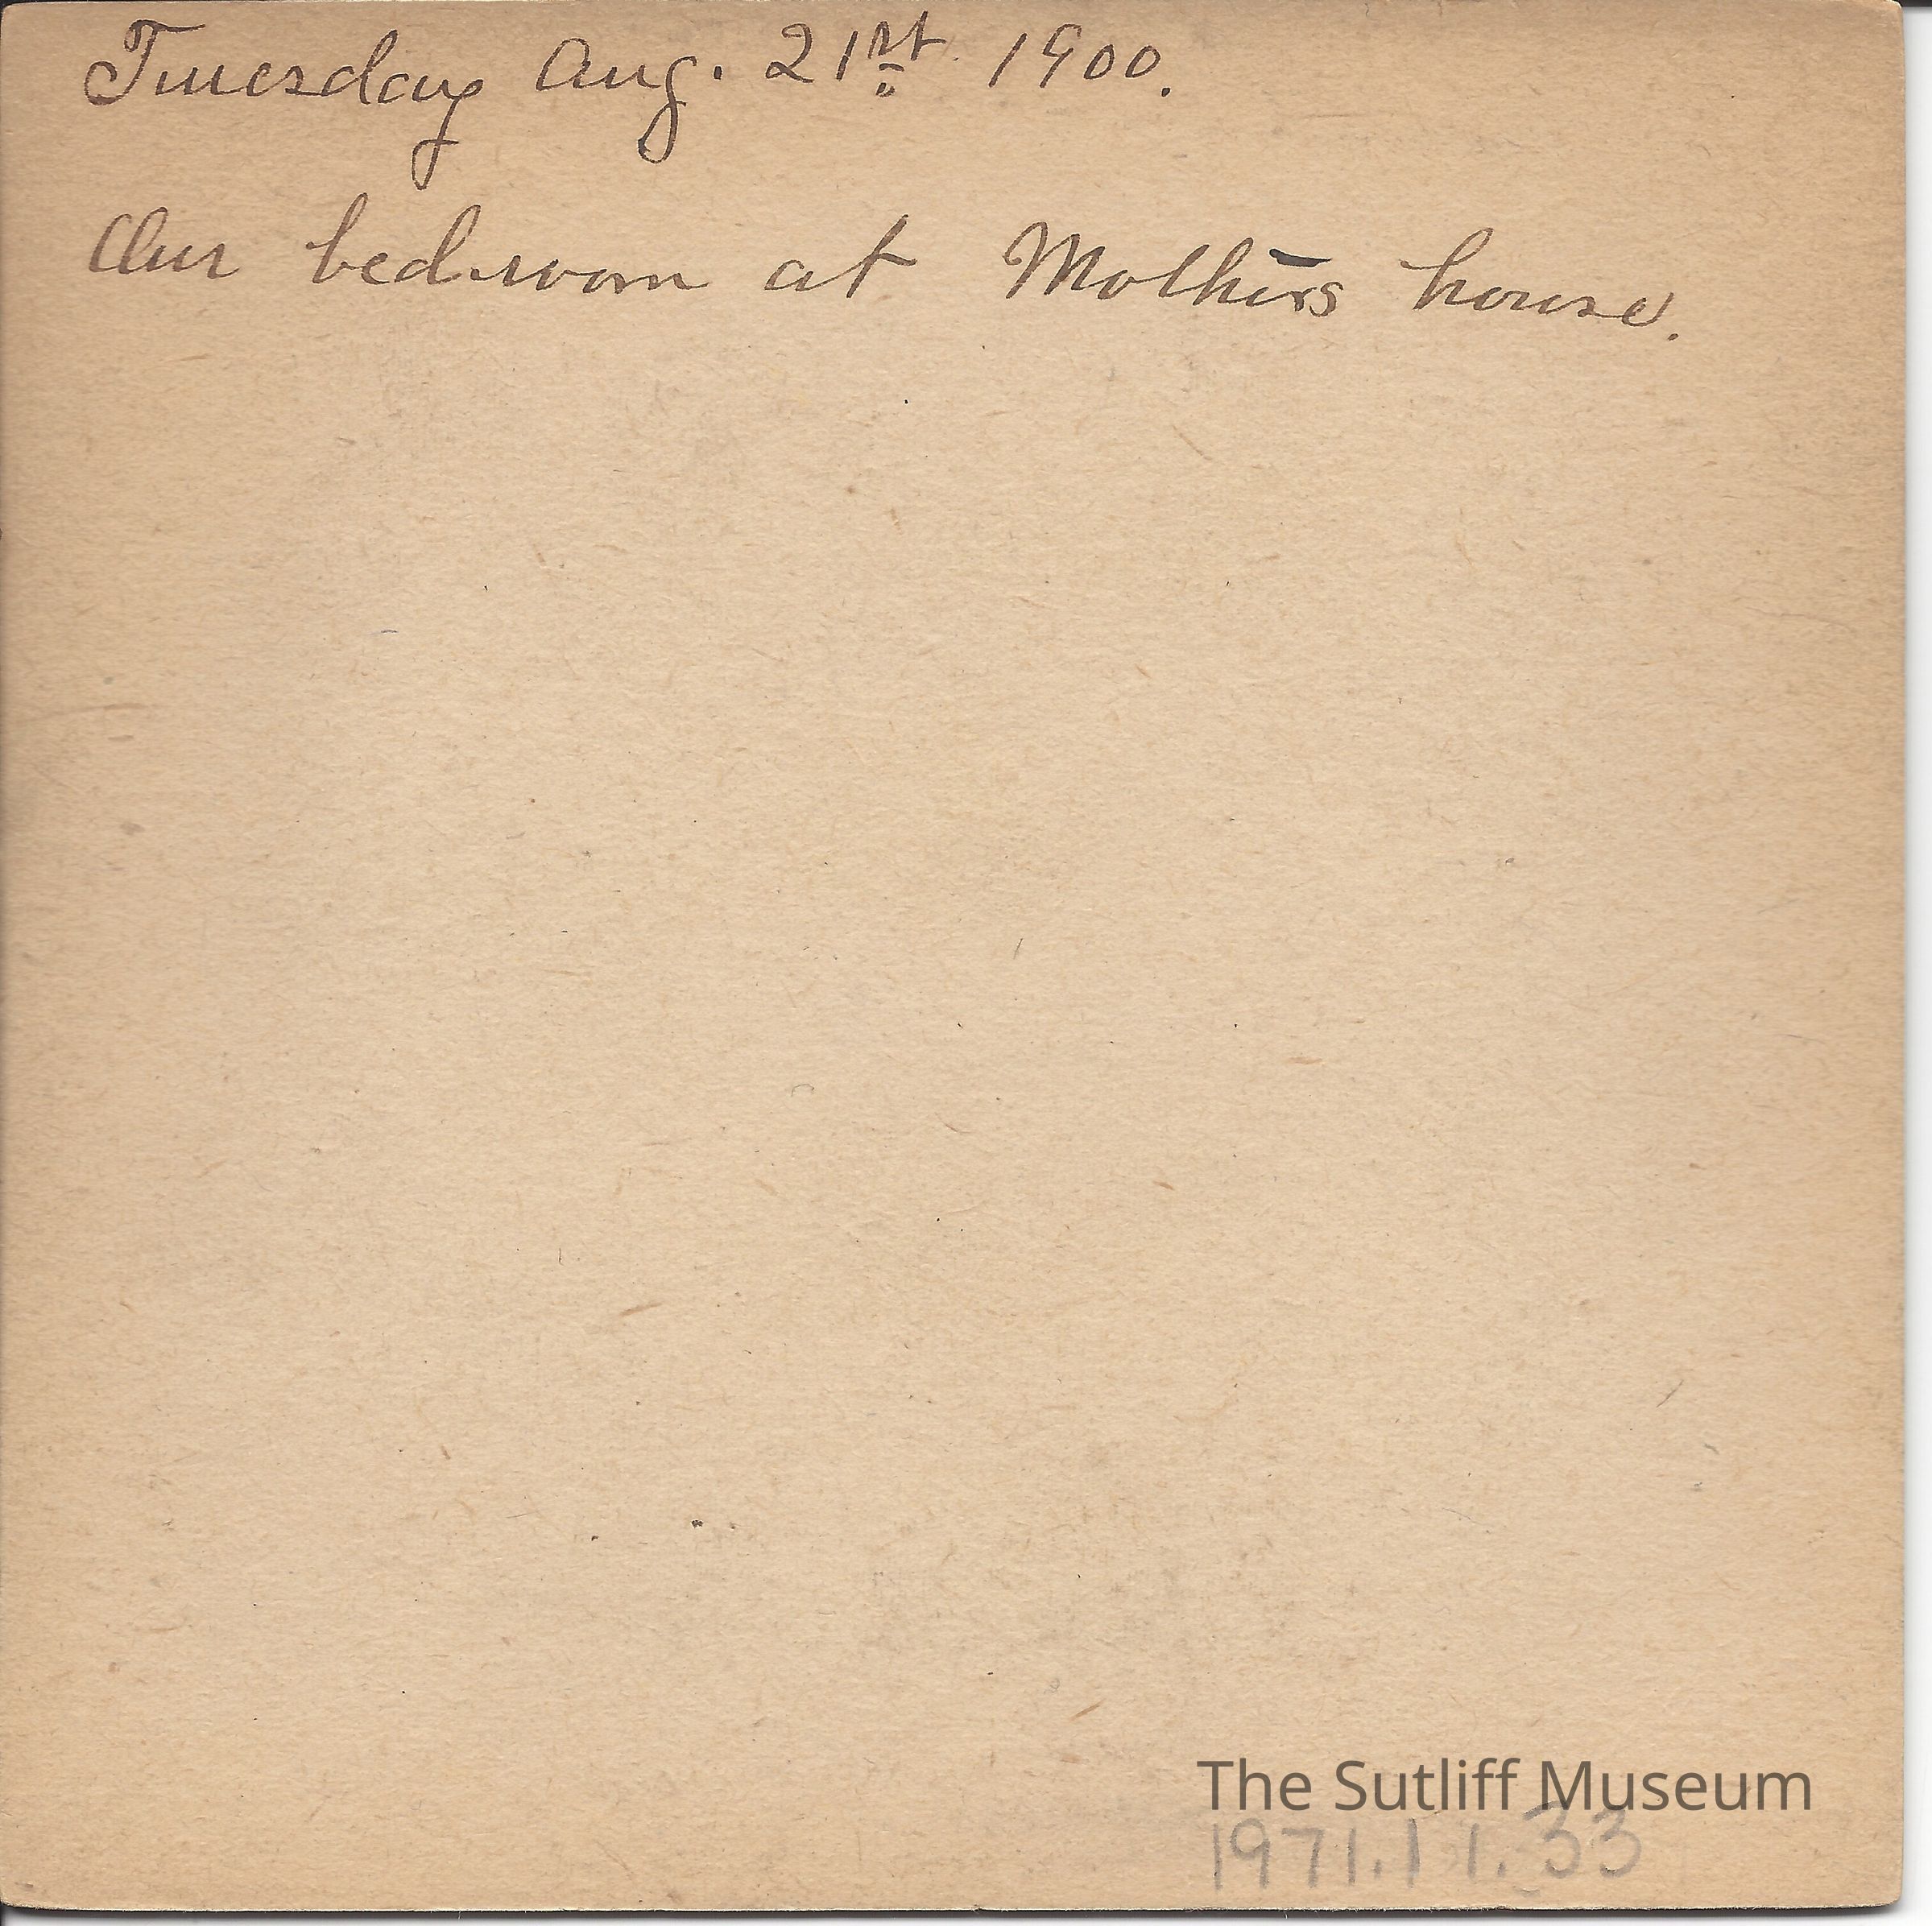 Tuesday Aug. 21st 1900.
Our bedroom at Mothers house.
The Sutliff Museum
1971.11.33